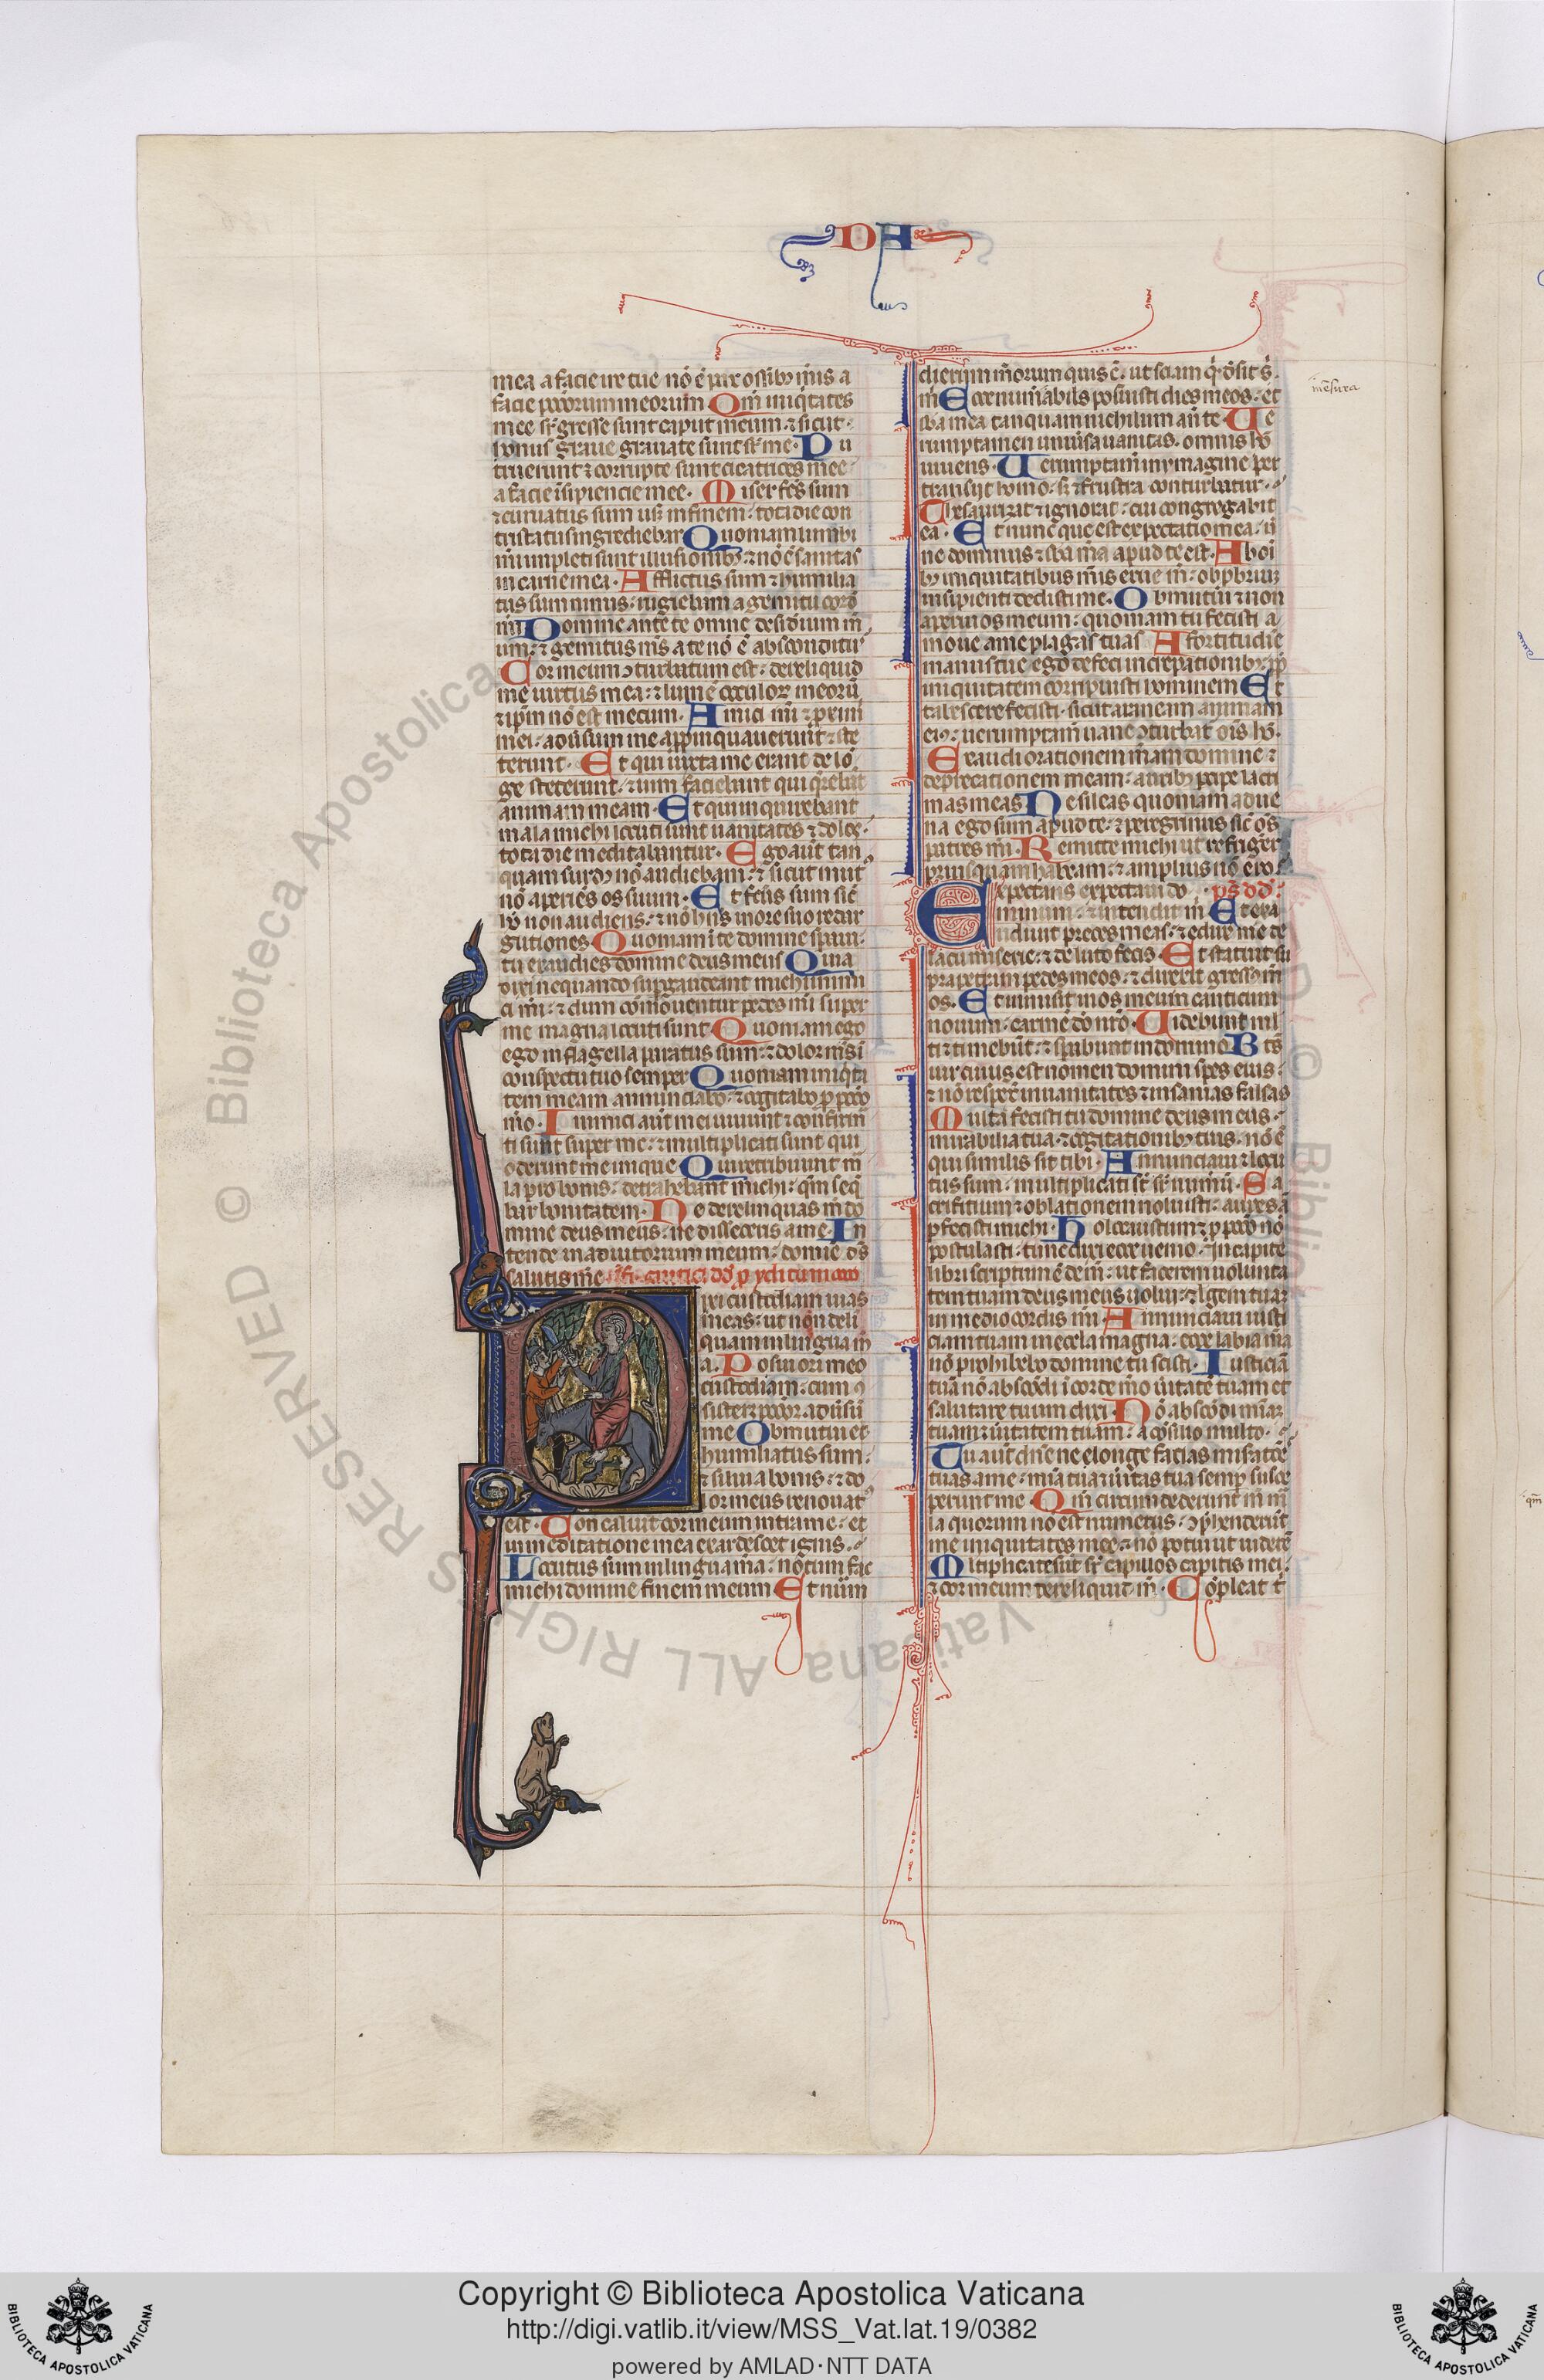 DA
mea a facie ire tue nō ē pax ossibꝫ mis a
facie pccōrum meorum Qm̄ iniq̇tates
mee sr̄gresse sunt caput meum ⁊ sicut
honus graue grauate sunt sr̄ me. Pu
truerunt ⁊ corrupte sunt cicatrices mee
a facie īsipiencie mee. Miser fc̄s sum
⁊ curuatus sum usꝫ in finem: tota die con
tristatus ingrediebar Quoniam lumbi
mī impleti sunt illusionibꝫ: ⁊ nō ē sanitas
in carne mea. Afflictus sum ⁊ humilia
tus sum nimis: rugiebam a gemitu cord̄
mī Domine ante te omne desid̄ium m̄
um: ⁊ gemitus ms̄ a te nō ē absconditꝰ
Cor meum ꝯturbatum est: dereliquid
me uirtus mea: ⁊ lum̄ ē oculoꝝ meorū
⁊ ip̄m nō est mecum. Amici mī ⁊ p̄ximi
mei: aduersum me app̄inquauerunt ⁊ ste
terunt. Et qui iuxta me erant de lō
ge steterunt: ⁊ uim faciebant qui q̄rebāt
animam meam. Et qui inquirebant
mala michi locuti sunt uanitates ⁊ dolos:
tota die meditabantur. Ego aūt tan
quam surdꝰ nō audiebam: ⁊ sicut mutꝰ
nō aperiēs os suum. Et fc̄us sum sic̄
hō non audiens: ⁊ nō hn̄s in ore suo redar
gutiones Quoniam ī te domine sperau:
tu exaudies domine deus meus Quia
dixi nequando supgaudeant michi inim
ci mī: ⁊ dum cōmouentur pedes mī super
me magna locuti sunt Quoniam ego
ego in flagella paratus sum: ⁊ dolor ms̄ ī
conspectu tuo semper Quoniam iniq̇ta
tem meam annunciabo: ⁊ cogitabo ꝓ pccō
mō. Inimici aūt mei uiuunt ⁊ confirm̄
ti sunt super me: ⁊ multiplicati sunt qui
oderunt me inique Qui retribuunt m̄
la pro bonis: detrahebant michi: qm̄ seq̄
bar bonitatem. Ne derelinquas m̄ do
mine deus meus: ne discesseris a me. In
tende in adiutorium meum: domīe ds̄
salutis mē
Dixi custodiam uias
meas: ut non deli
quam in lingua m̄
a. Posui ori meo
custodiam: cum ꝯ
sisteret pccōr adūsū
me Obmutui et
humiliatus sum:
⁊ silui a bonis: ⁊ do
lor meus renouatꝰ
est. Concaluit cor meum intra me: et
in meditatione mea exardescet ignis.
Locutus sum in lingua mā: notum fac
michi domine finem meum Et nūm
dierum morum quis ē: ut sciam qͥd d̄sit
m̄ Ecce mensurabilēs posuisti dies meos: et
sb̄a mea tanquam nichilum an̄ te. Ue
rumptamen uniuersa uanitas: omnis hō
uiuens. Uerumptam̄ in ymagine per
transijt homo: s; ⁊ frustra conturbatur.
Thesaurizat ⁊ ignorat: cui congregabit
ea. Et nunc que est expectatio mea: n̄
ne dominus ⁊ sb̄a mā apud te est. Ab oī
bꝫ iniquitatibus mīs erue m̄: obp̄brium
insipienti dedisti me. Obmutui ⁊ non
aperui os meum: quoniam tu fecisti a
moue a me plagas tuas A fortitudīe
manus tue ego defeci in increpationibꝫ: ꝓp̄
iniquitatem corripuisti hominem Et
tabescere fecisti sicut araneam animam
eiꝰ: uerumptam̄ uane ꝯturbat̄ oīs hō.
Exaudi orationem mām domine: ⁊
deprecationem meam: auribꝫ percipe lacri
mas meas Ne sileas quoniam adue
na ego sum apud te: ⁊ peregrinus sic̄ oēs
patres mī. Remitte michi ut refrigerer
priusquam habeam: ⁊ amplius nō ero.
Expectans expectaui do ps̄ dd
minum: ⁊ intendit m̄ Et exa
udiuit preces meas: ⁊ eduxit me de
lacu miserie: ⁊ de luto fecis. Et statuit su
pra petram pedes meos: ⁊ direxit gressꝰ m̄
os. Et inmisit in os meum canticum
nouum: carmē dō nrō. Uidebunt ml
ti ⁊ timebūt: ⁊ spabunt in domino Bt̄s
uir cuius est nomen domini spes eius:
⁊ nō respex̄ in uanitates ⁊ insanias falsas
Multa fecisti tu domine deus meus
mirabilia tua: ⁊ cogitationibꝫ tuis nō ē
qui similis sit tibi. Annunciaui ⁊ locu
tus sum: multiplicati sr̄ sr̄ num̄ū. Sa
crificium ⁊ oblationem noluisti: aures ā
ꝑfecisti michi. Holocaustum ⁊ ꝓ pccō nō
postulasti: tunc dixi ecce uenio. In capite
libri scriptum ē de m̄: ut facerem uolunta
tem tuam deus meus uolui: ⁊ legem tuā
in medio cordis mī. Annunciaui iusti
ciam tuam in ecclesia magna: ecce labia mā
nō prohibebo domine tu scisti. Iusticiā
tuā nō abscōdi ī corde mō ūitatē tuam et
salutare tuum dixi. Nō abscōdi mīam
tuam ⁊ ūitatem tuam: a cōsilio multo.
Tu aūt dn̄e ne elonge facias misratōēs
tuas a me: mīa tua ⁊ ūitas tua semp susce
perunt me. Qm̄ circumdederunt m̄ m̄
la quorum nō est numerus: ꝯp̄henderūt
me iniquitates mee: ⁊ nō potui ut uiderē
Mltiplicate sūt sr̄ capillos capitis mei:
⁊ cor meum dereliquit m̄. Cōpleat t̄
mēsura
Copyright © Biblioteca Apostolica Vaticana
http://digi.vatlib.it/view/MSS_Vat.lat.19/0382
powered by AMLAD·NTT DATA
BIBLIOTECA APOSTOLICA VATICANA
BIBLIOTECA APOSTOLICA VATICANA
© Biblioteca Apostolica Vaticana ALL RIGHTS RESERVED